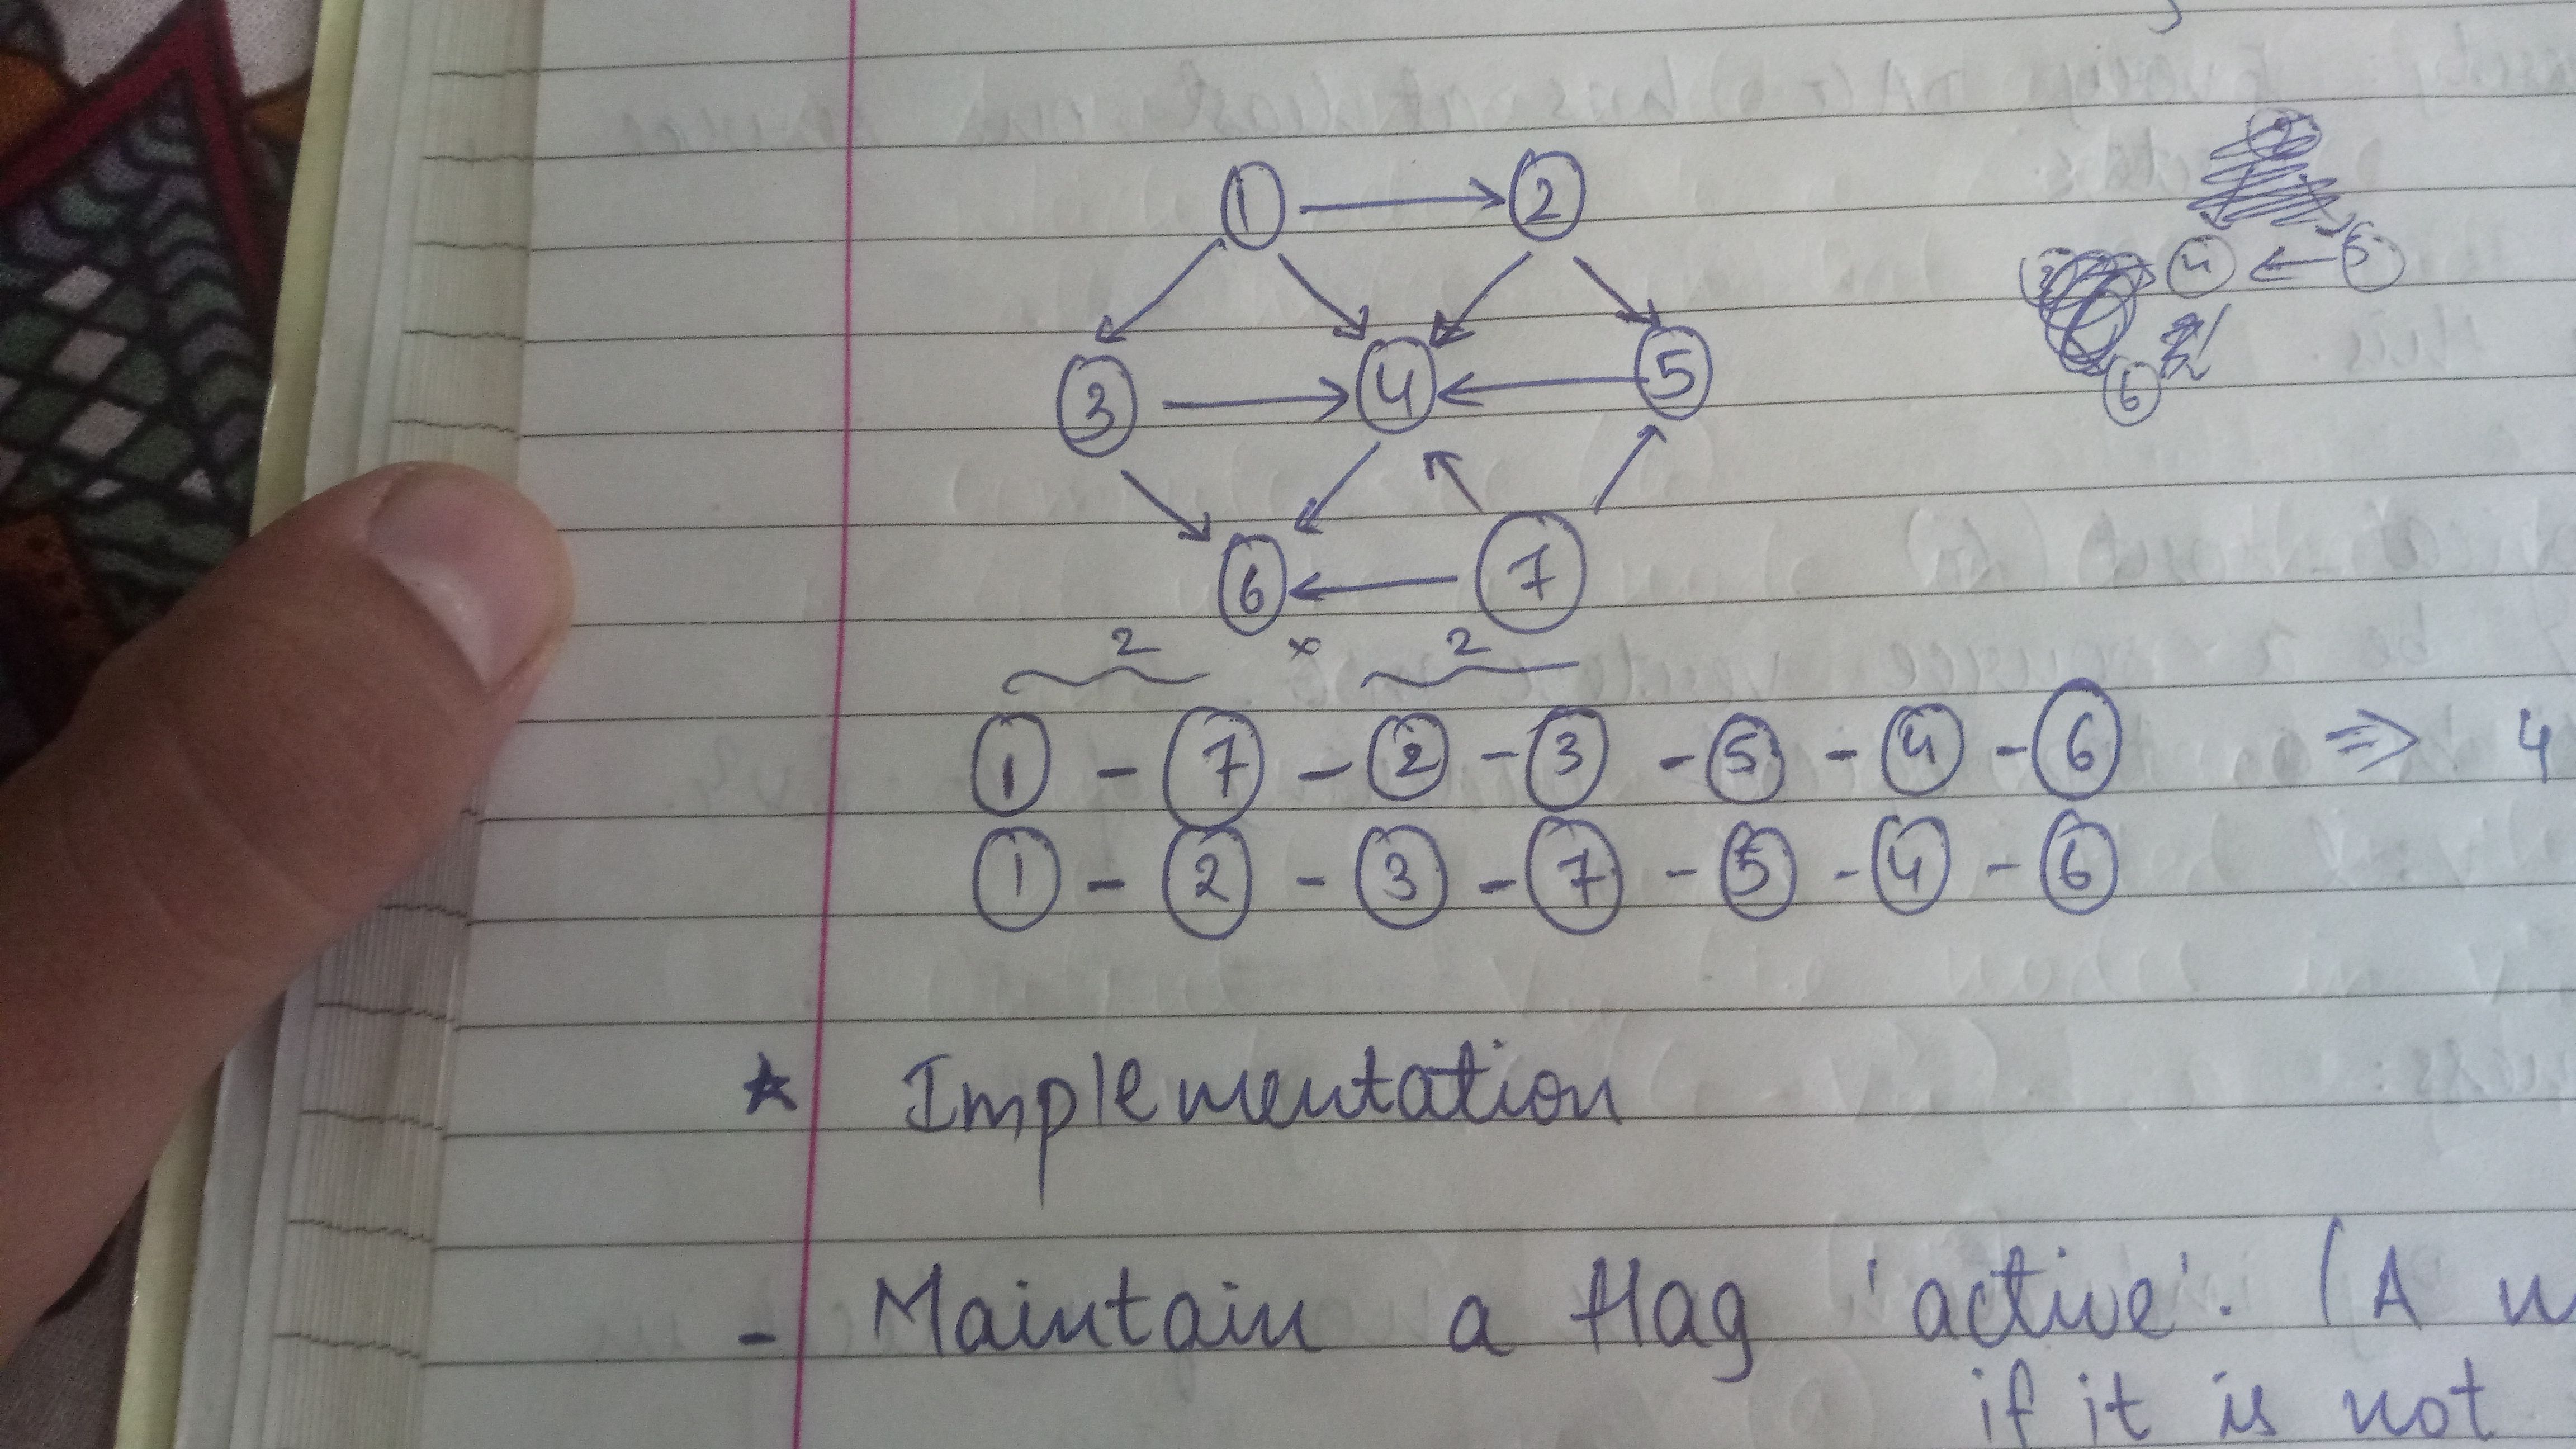 1 → 2
3 → 4 ← 5
4 ← 5
6
6 ← 7
2 × 2
1 - 7 - 2 - 3 - 5 - 4 - 6 ⇒ 4
1 - 2 - 3 - 7 - 5 - 4 - 6
★ Implementation
- Maintain a flag 'active'. (A
if it is not